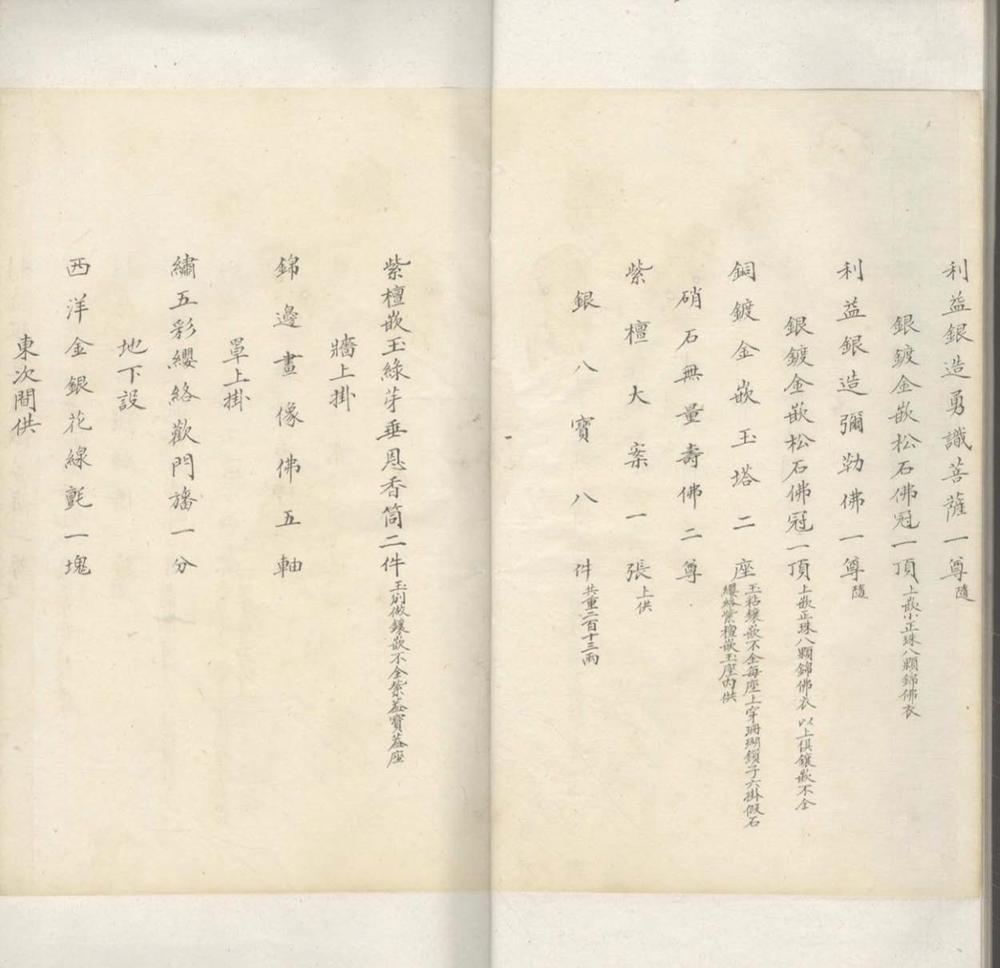 利益銀造勇識菩薩一尊隨
銀鍍金嵌松石佛冠一頂上嵌小正珠八顆錦佛衣
利益銀造彌勒佛一尊隨
銀鍍金嵌松石佛冠一頂上嵌正珠八顆錦佛衣 以上俱鑲嵌不全
銅鍍金嵌玉塔二座玉粘鑲嵌不全每座上穿珊瑚鎖子六掛假石
纓絡紫檀嵌玉座內供
硝石無量壽佛二尊
紫檀大案一張上供
銀八寶八件共重二百十三兩
紫檀嵌玉綠芽垂恩香筒二件玉別做鑲嵌不全紫蓋寶蓋座
牆上掛
錦邊畫像佛五軸
罩上掛
繡五彩纓絡歡門旛一分
地下設
西洋金銀花線氈一塊
東次間供